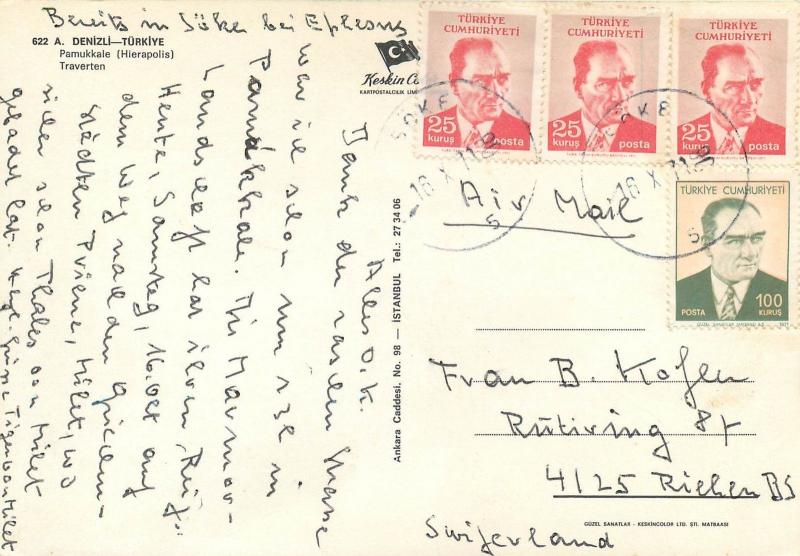 Bereits in Söke bei Ephesus
622 A. DENİZLİ—TÜRKİYE
Pamukkale (Hierapolis)
Traverten
Keskin Co
KARTPOSTALCILIK LİM
Alles O.K.
Dank der raschen Strasse
war ich schon um 13h in
Pamukkale. Die Marmor-
Landschaft hat ihren Reiz.
Heute, Samstag, 16. Okt auf
dem Weg nach den Griechen-
städten Priene, Milet, wo
schon Thales von Milet
gebadet hat. Herzl. Grüsse Tiger von Milet
Ankara Caddesi. No. 98 — İSTANBUL Tel.: 27 34 06
TÜRKİYE CUMHURİYETİ
25 kuruş posta
TÜRKİYE CUMHURİYETİ
25 kuruş posta
TÜRKİYE CUMHURİYETİ
25 kuruş posta
SÖKE
16 X 71
5
SÖKE
16 X 71
5
TÜRKİYE CUMHURİYETİ
POSTA 100 KURUŞ
1971
Air Mail
Frau B. Kofen
Rütiring 87
4125 Riehen BS
Switzerland
GÜZEL SANATLAR - KESKİNCOLOR LTD. ŞTİ. MATBAASI